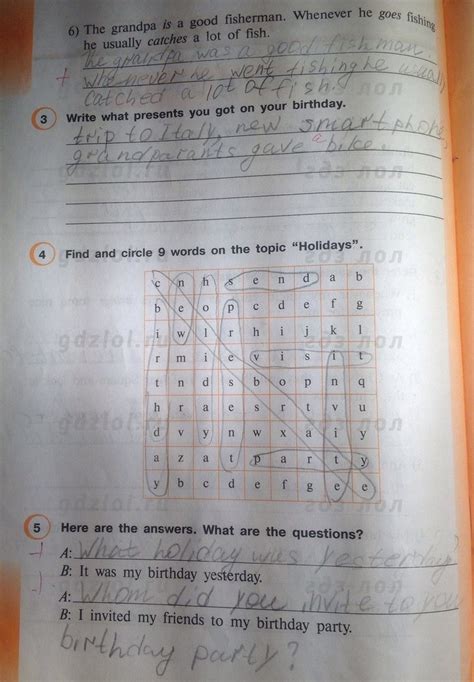 6) The grandpa is a good fisherman. Whenever he goes fishing
he usually catches a lot of fish.
he grandpa was a good fishman.
+ Whenever he went fishing he usualy
catched a lot of fish.
3 Write what presents you got on your birthday.
trip to Italy, new smartphone,
grandparants gave a bike.
4 Find and circle 9 words on the topic "Holidays".
c n h s e n d a b
b e o p c d e f g
i w l r h i j k l
r m i e v i s i t
t n d s b o p n q
h r a e s r t v u
d v y n w x a i y
a z a t p a r t y
y b c d e f g e e
5 Here are the answers. What are the questions?
A: What holiday was yesterday
B: It was my birthday yesterday.
A: Whom did you invite to your
B: I invited my friends to my birthday party.
birthday party?
gdzlol.ru
гдз лол